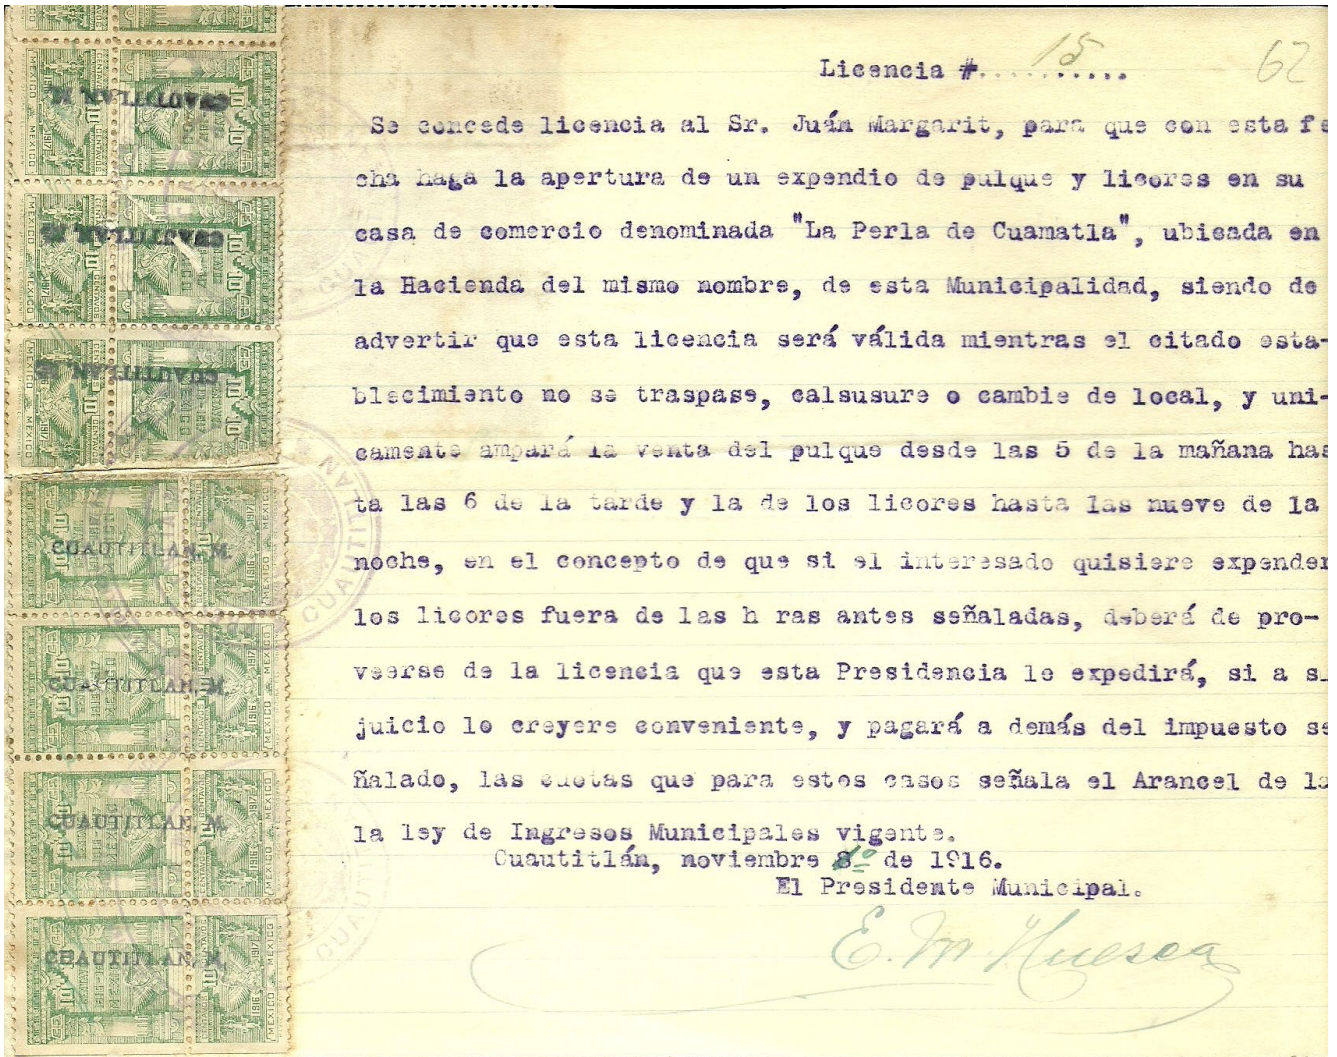 62
Licencia #..15........
Se concede licencia al Sr. Juán Margarit, para que con esta fe
cha haga la apertura de un expendio de pulque y licores en su
casa de comercio denominada "La Perla de Cuamatla", ubicada en
la Hacienda del mismo nombre, de esta Municipalidad, siendo de
advertir que esta licencia será válida mientras el citado esta-
blecimiento no se traspase, calsusure o cambie de local, y uni-
camente ampará la venta del pulque desde las 5 de la mañana has
ta las 6 de la tarde y la de los licores hasta las nueve de la
noche, en el concepto de que si el interesado quisiere expender
los licores fuera de las h ras antes señaladas, deberá de pro-
veerse de la licencia que esta Presidencia le expedirá, si a s
juicio lo creyere conveniente, y pagará a demás del impuesto se
ñalado, las cuotas que para estos casos señala el Arancel de la
la ley de Ingresos Municipales vigente.
Cuautitlán, noviembre 1º de 1916.
El Presidente Municipal.
E. M. Huesca
CUAUTITLAN, M.
CUAUTITLAN, M.
CUAUTITLAN, M.
CUAUTITLAN, M.
CUAUTITLAN, M.
CUAUTITLAN, M.
CUAUTITLAN, M.